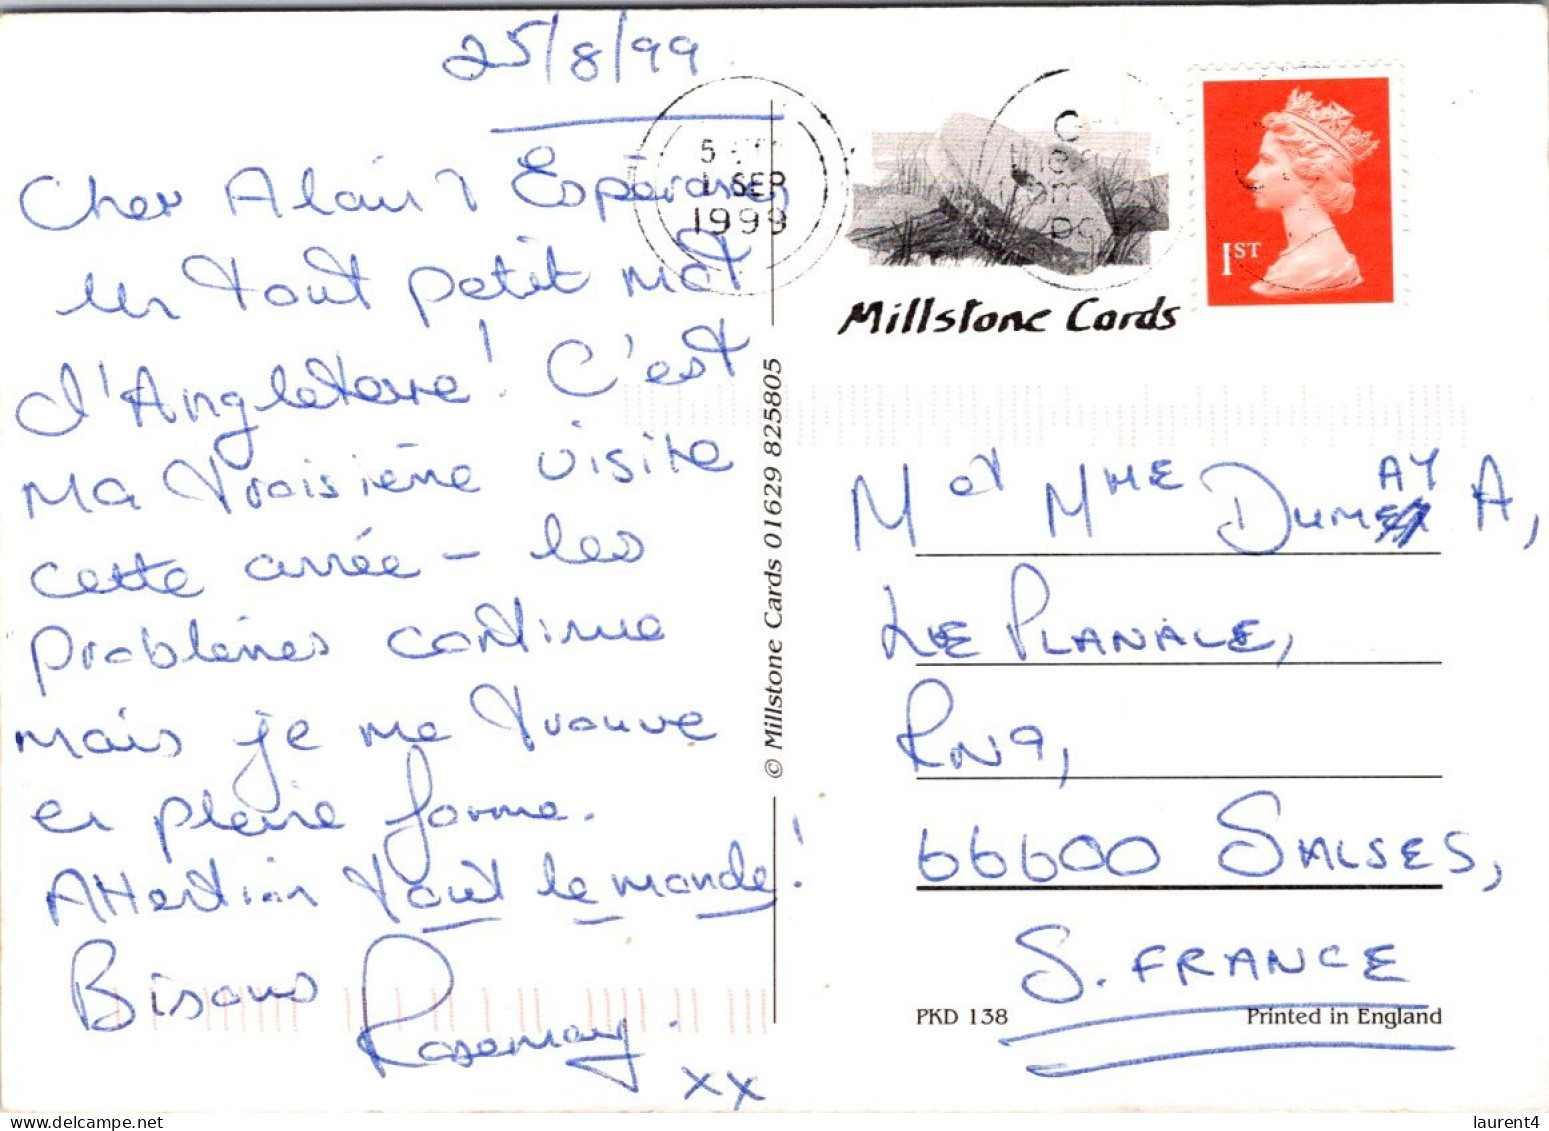 25/8/99
Cher Alain & Espérance,
un tout petit mot
d'Angleterre! C'est
ma troisième visite
cette année - les
problèmes continue
mais je me trouve
en pleine forme.
Attention tout le monde!
Bisous
Rosemary.
xx
5
1 SEP
1999
Millstone Cards
1ST
© Millstone Cards 01629 825805
M et Mme DUMAY A,
LE PLANALE,
RN9,
66600 SALSES,
S. FRANCE
PKD 138
Printed in England
laurent4